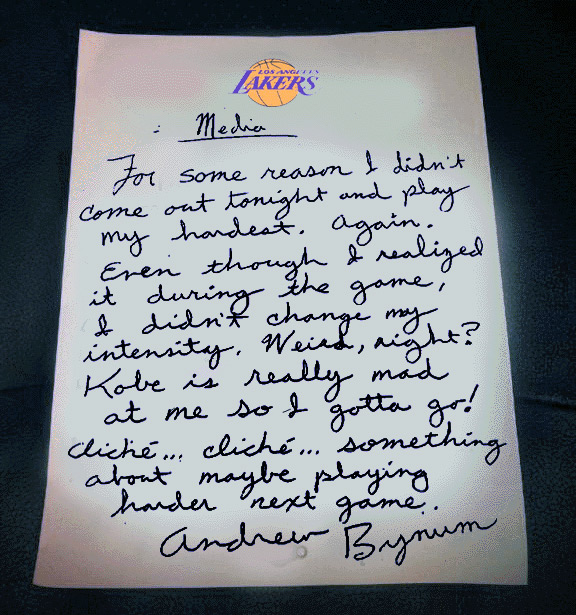 LOS ANGELES
LAKERS
: Media
For some reason I didn't
come out tonight and play
my hardest. Again.
Even though I realized
it during the game,
I didn't change my
intensity. Weird, right?
Kobe is really mad
at me so I gotta go!
Cliché... cliché... something
about maybe playing
harder next game.
Andrew Bynum